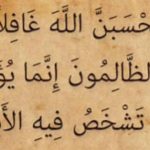 حْسَبَنَّ اللَّهَ غَافِلًا
الظَّالِمُونَ إِنَّمَا يُؤَ
تَشْخَصُ فِيهِ الْأَ